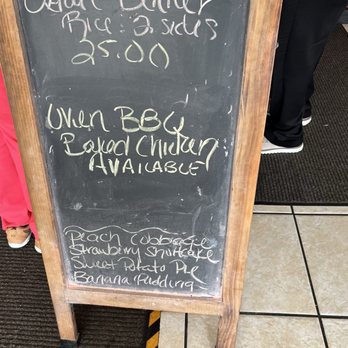 Dinner
Rice + 2 sides
25.00
Oven BBQ
Baked Chicken
AVAILABLE
Peach Cobbler
Strawberry Shortcake
Sweet Potato Pie
Banana Pudding